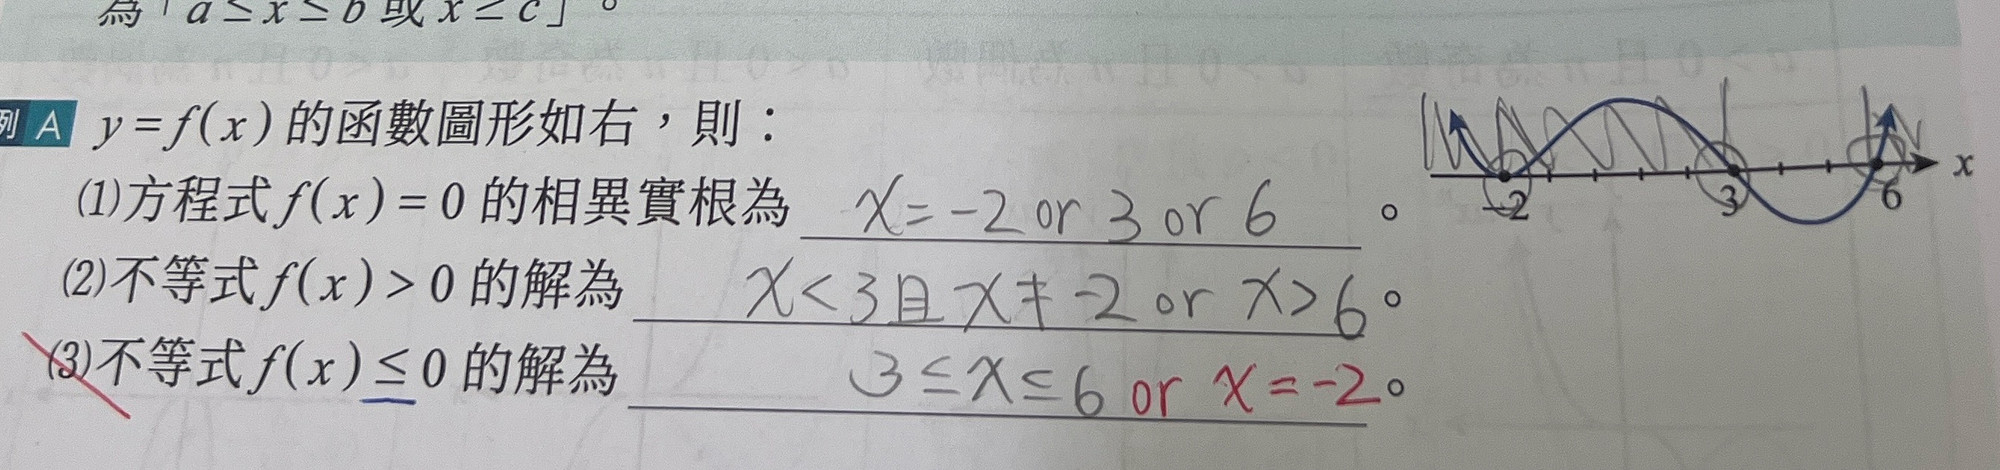 為「a≤x≤b或x≥c」。
例 A y=f(x)的函數圖形如右，則：
(1)方程式f(x)=0的相異實根為 x=-2 or 3 or 6。
(2)不等式f(x)>0的解為 x<3且x≠-2 or x>6。
(3)不等式f(x)≤0的解為 3≤x≤6 or x=-2。
-2 3 6 x